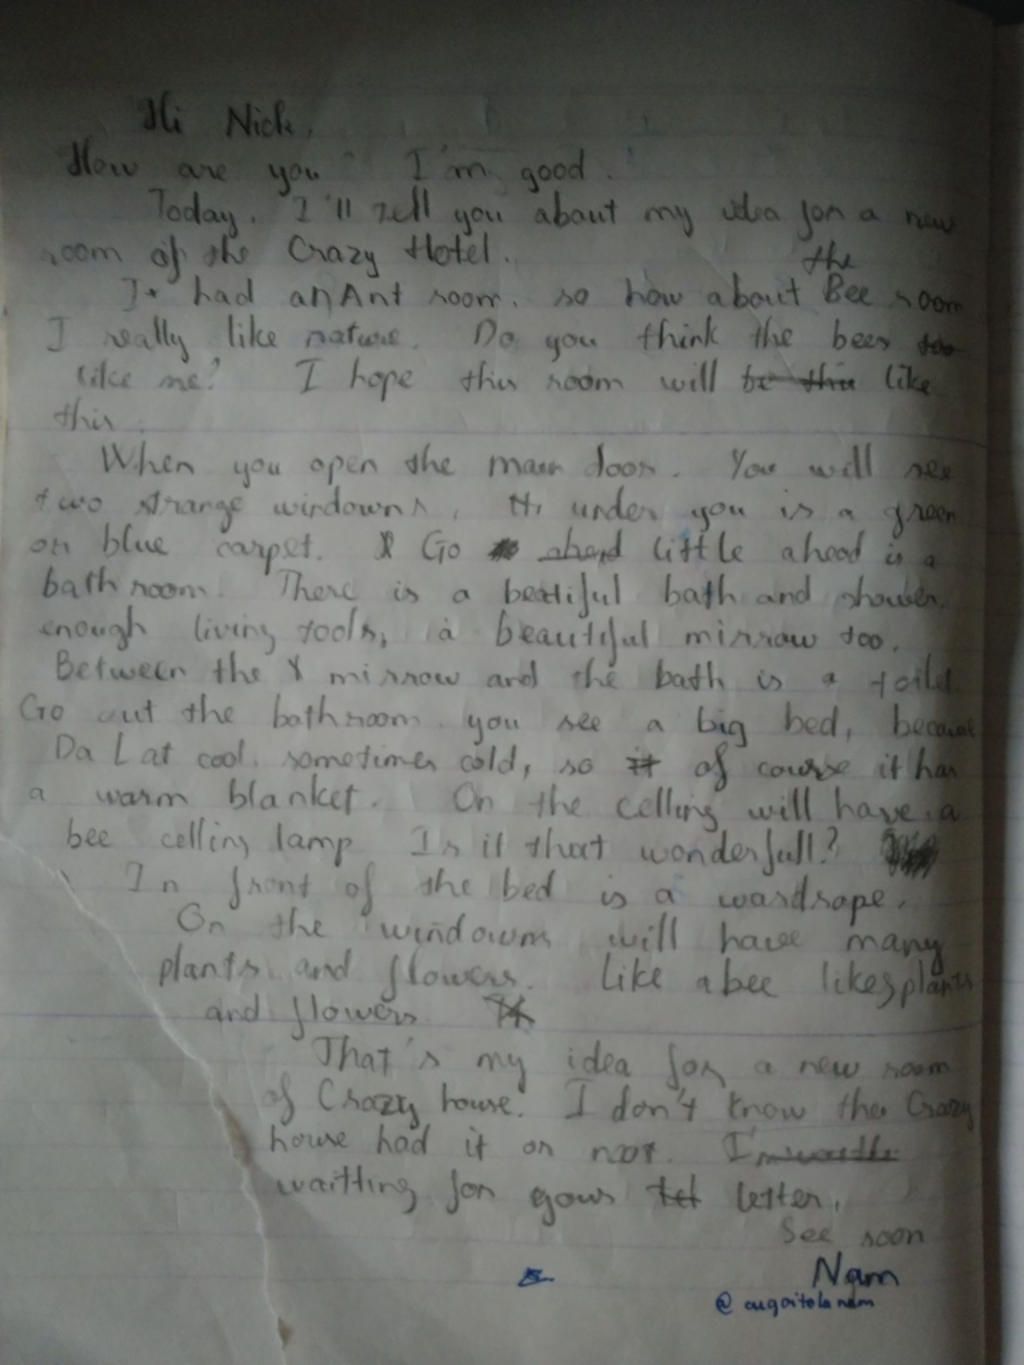 Hi Nick,
How are you? I'm good.
Today, I'll tell you about my idea for a new
room of the Crazy Hotel.
the
It had an Ant room, so how about Bee room
I really like nature. Do you think the bees too
like me? I hope this room will be this like
this.
When you open the main door. You will see
two strange windowns, under you is a green
or blue carpet. Go ahead little ahead is a
bathroom. There is a beatiful bath and shower,
enough living tools, a beautiful mirrow too.
Between the mirrow and the bath is a toilet.
Go out the bathroom you see a big bed, because
Da Lat cool sometimes cold, so it of course it has
a warm blanket. On the celling will have a
bee celling lamp Is it that wonderfull?
In front of the bed is a wardrape.
On the windowns will have many
plants and flowers. Like a bee likes plants
and flowers. It
That's my idea for a new room
of Crazy house. I don't know the Crazy
house had it or not. I'm
waitting for your let letter.
See soon
Nam